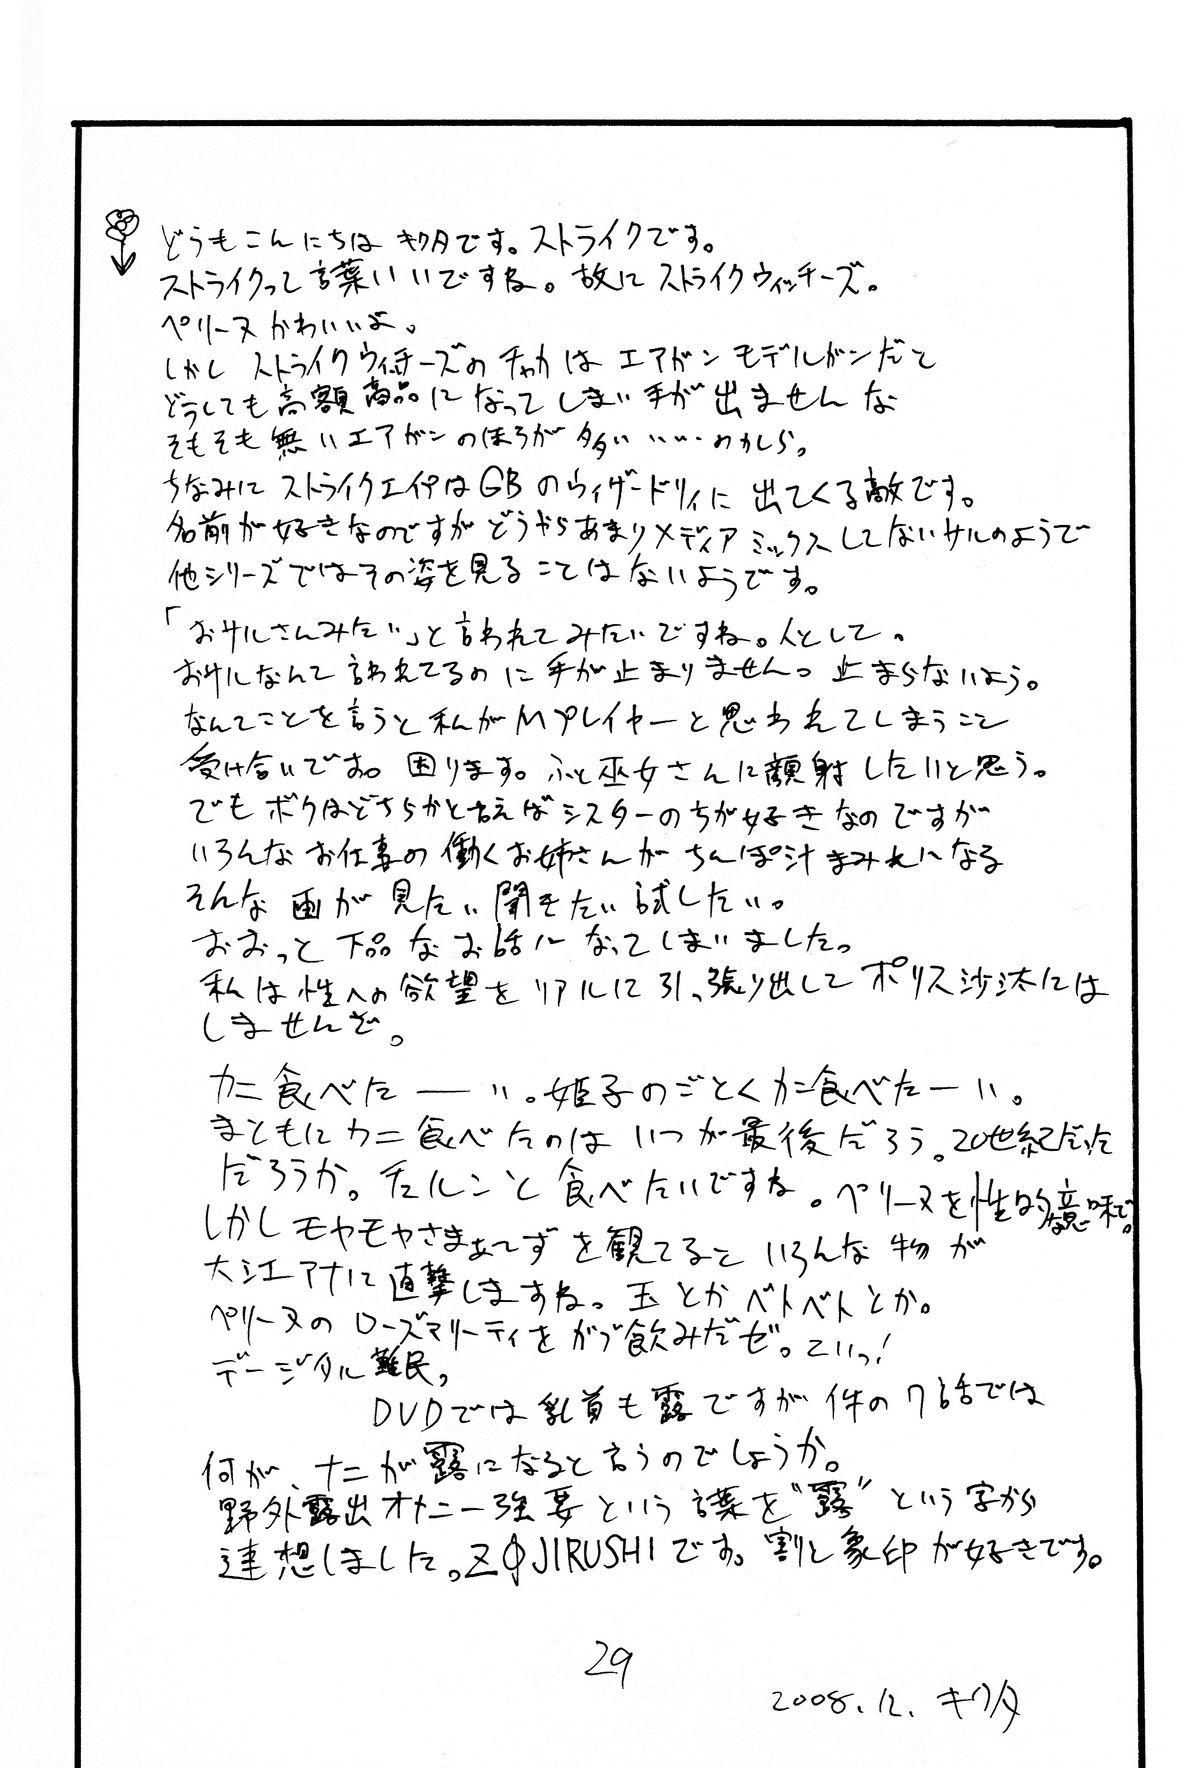 どうもこんにちは キクタです。ストライクです。
ストライクって言葉いいですね。故にストライクウィッチーズ。
ペリーヌかわいいよ。
しかし ストライクウィッチーズのチャカは エアガン モデルガンだと
どうしても高額商品になってしまい手が出ませんな
そもそも無いエアガンのほうが多い・・・かしら。
ちなみに ストライクエイプはGBのウィザードリィに出てくる敵です。
名前が好きなのですがどうやらあまりメディアミックスしてないサルのようで
他シリーズではその姿を見ることはないようです。
「おサルさんみたい」と言われてみたいですね。人として。
おサルなんて言われてるのに手が止まりませんっ 止まらないよう。
なんてことを言うと私がMプレイヤーと思われてしまうこと
受け合いです。困ります。ふと巫女さんに顔射したいと思う。
でもボクはどちらかと言えばシスターのちが好きなのですが
いろんなお仕事の働くお姉さんがちんぽ汁まみれになる
そんな画が見たい聞きたい試したい。
おおっと下品なお話になってしまいました。
私は性への欲望をリアルに引っ張り出してポリス沙汰には
しませんぞ。
カニ食べたーーい。姫子のごとくカニ食べたーい。
まともにカニ食べたのは いつが最後だろう。20世紀だった
だろうか。チュルンと食べたいですね。ペリーヌを性的な意味で。
しかしモヤモヤさまぁ〜ずを観てると いろんな物が
大江アナに直撃しますね。玉とかベトベトとか。
ペリーヌのローズマリーティをがぶ飲みだぜ。こいっ!
デージタル難民。
DVDでは乳首も露ですが件の7話では
何が、ナニが露になると言うのでしょうか。
野外露出オナニー強要という言葉を"露"という字から
連想しました。ZOJIRUSHIです。割と象印が好きです。
29
2008.12. キクタ